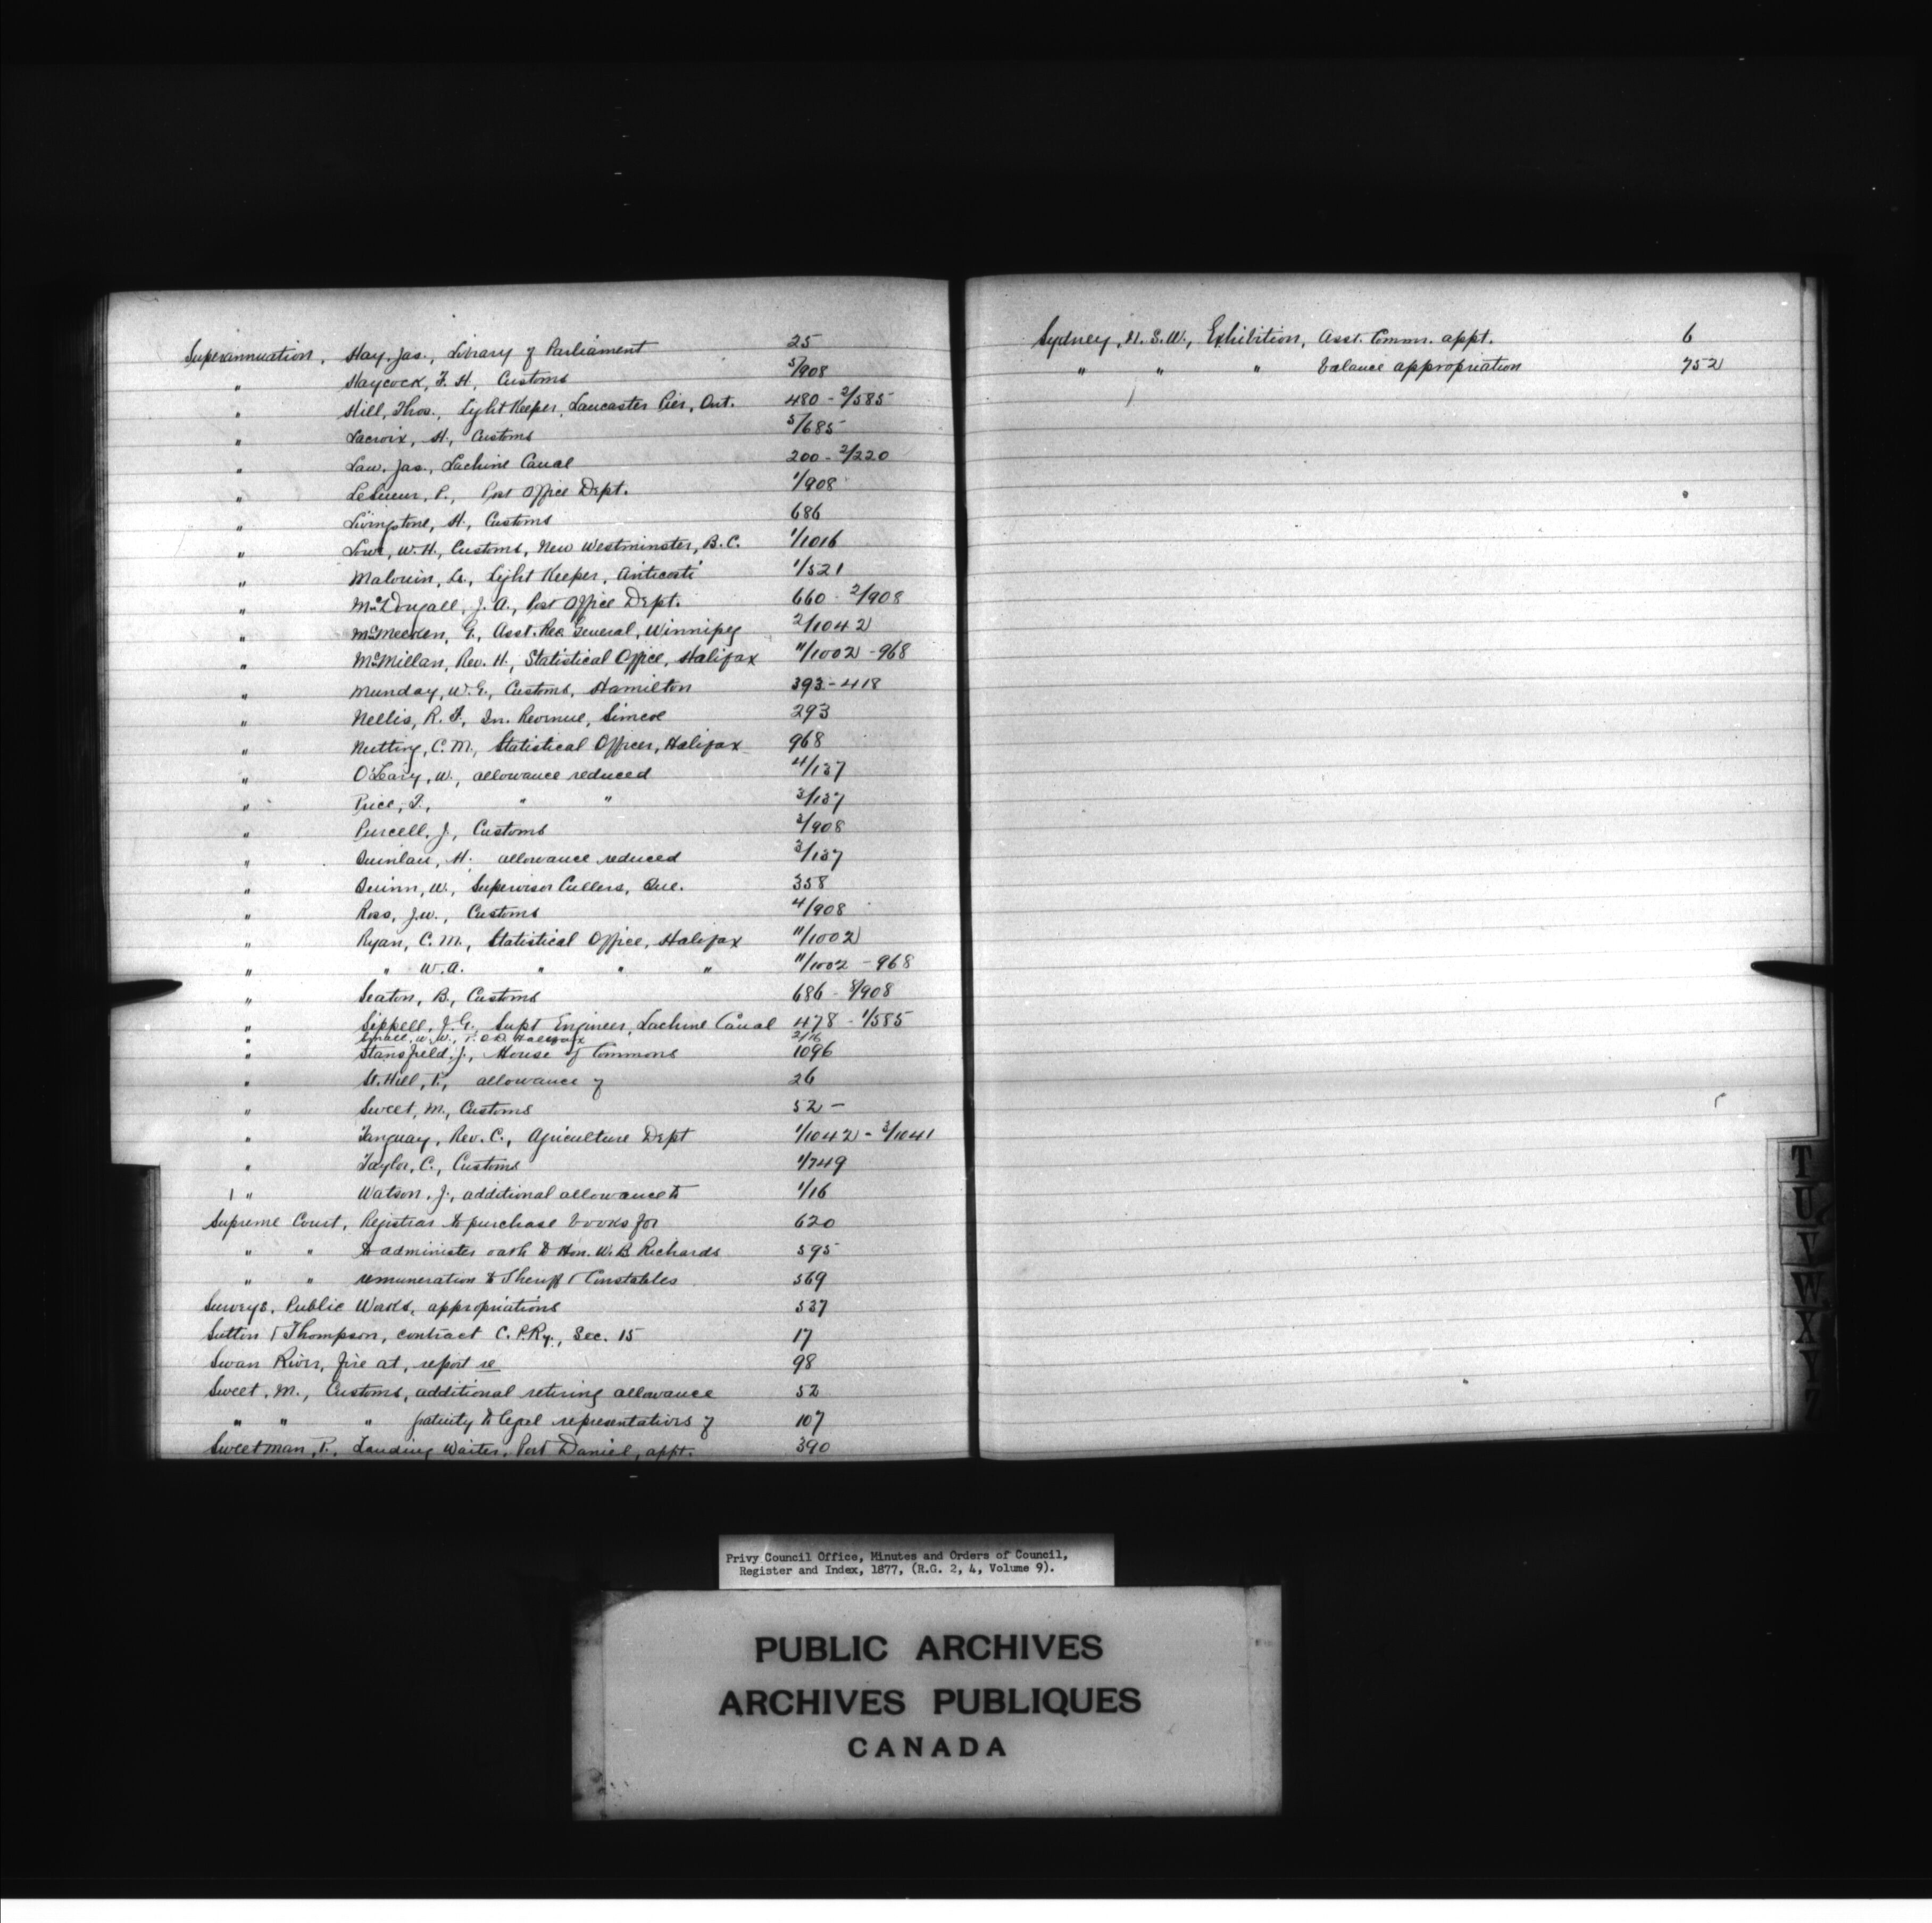 Superannuation, Hay, Jas., Library of Parliament 25
" Haycock, F. H., Customs 5/908
" Hill, Thos., Light Keeper, Lancaster Pier, Ont. 480 - 2/585
" Lacroix, H., Customs 5/685
" Law, Jas., Lachine Canal 200 - 2/220
" LeSueur, P., Post Office Dept. 1/908
" Livingstone, H., Customs 686
" Lowe, W. H., Customs, New Westminster, B.C. 1/1016
" Malouin, Ls., Light Keeper, Anticosti 1/521
" McDougall, J. A., Post Office Dept. 660 - 2/908
" McMicken, G., Asst. Rec. General, Winnipeg 2/1042
" McMillan, Rev. H., Statistical Office, Halifax 11/1002 - 968
" Munday, W. G., Customs, Hamilton 393 - 418
" Nellis, R. F., In. Revenue, Simcoe 293
" Nutting, C. M., Statistical Officer, Halifax 968
" O'Leary, W., allowance reduced 4/137
" Price, T., " " 3/137
" Purcell, J., Customs 3/908
" Quinlan, H. allowance reduced 3/137
" Quinn, W., Supervisor Cullers, Que. 358
" Ross, J. W., Customs 4/908
" Ryan, C. M., Statistical Office, Halifax 11/1002
" " W. A. " " " 11/1002 - 968
" Seaton, B., Customs 686 - 8/908
" Sippell, J. G., Supt Engineer, Lachine Canal 478 - 1/585
" Smale, W. W., P.O.D. Halifax 2/16
" Stansfield, J., House of Commons 1096
" St. Hill, T., allowance of 26
" Sweet, M., Customs 52 -
" Tanguay, Rev. C., Agriculture Dept 1/1042 - 3/1041
" Taylor, C., Customs 1/749
" Watson, J., additional allowance to 1/16
Supreme Court, Registrar to purchase books for 620
" " to administer oath to Hon. W. B. Richards 595
" " remuneration to Sheriff & Constables 569
Surveys, Public Works, appropriations 537
Sutton & Thompson, contract C. P. Ry., Sec. 15 17
Swan River, fire at, report re 98
Sweet, M., Customs, additional retiring allowance 52
" " " gratuity to legal representatives of 107
Sweetman, P., Landing Waiter, Port Daniel, appt. 390
Sydney, N. S. W., Exhibition, Asst. Commr. appt. 6
" " " balance appropriation 752
T
U
V
W
X
Y
Z
Privy Council Office, Minutes and Orders of Council,
Register and Index, 1877, (R.G. 2, 4, Volume 9).
PUBLIC ARCHIVES
ARCHIVES PUBLIQUES
CANADA